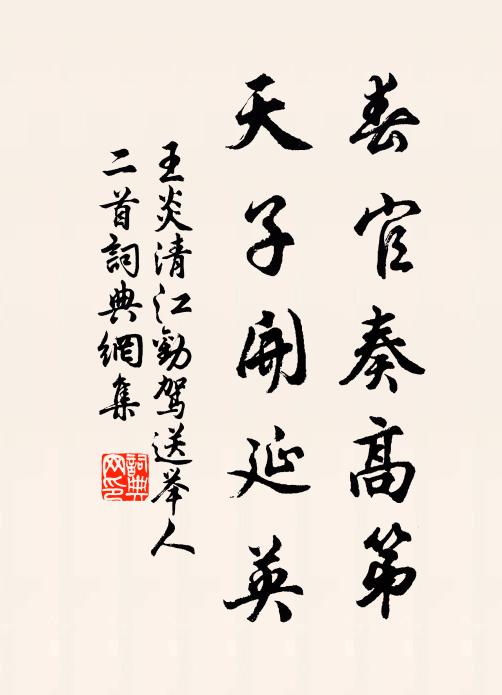 春官奏高第
天子開延英
王炎清江勸駕送举人
二首詞典網集
詞典
网印